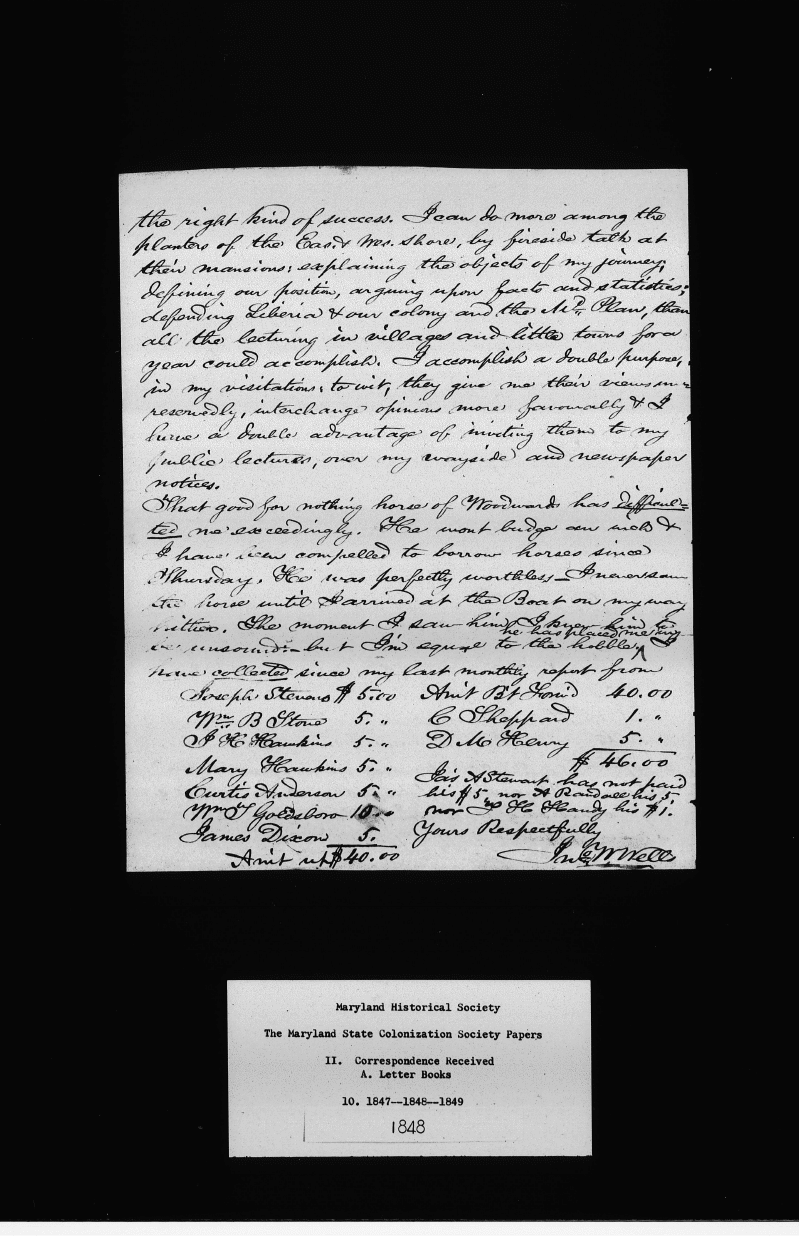 the right kind of success. I can do more among the
planters of the Eas. & Wes. shore, by fireside talk at
their mansions; explaining the objects of my journey;
defining our position, arguing upon facts and statistics;
defending Liberia & our colony and the Md. Plan, than
all the lecturing in villages and little towns for a
year could accomplish. I accomplish a double purpose,
in my visitations; to wit, they give me their views un=
reservedly, interchange opinions more favourably & I
have a double advantage of inviting them to my
public lectures, over my wayside and newspaper
notices.
That good for nothing horse of Woodwards has difficul=
ted me exceedingly. He wont budge an inch &
I have been compelled to borrow horses since
Thursday. He was perfectly worthless; I never saw
the horse until I arrived at the Boat on my way
hither. The moment I saw him I knew him to
be unsound:- but I'm equal to the hobble he has placed me in. I
have collected since my last monthly report from
Joseph Stevens $ 5.00
Wm B Stone 5. "
J H Hawkins 5. "
Mary Hawkins 5. "
Curtis Anderson 5. "
Wm T Goldsboro 10. "
James Dixon 5.
Am't up $40.00
Am't B't For'd 40.00
C Sheppard 1. "
D M Henry 5. "
$ 46.00
Ja's A Stewart has not paid
his $5 nor A Randall his 5.
nor J H Handy his $1.
Yours Respectfully
Jno W Wells
Maryland Historical Society
The Maryland State Colonization Society Papers
II. Correspondence Received
A. Letter Books
10. 1847--1848--1849
1848